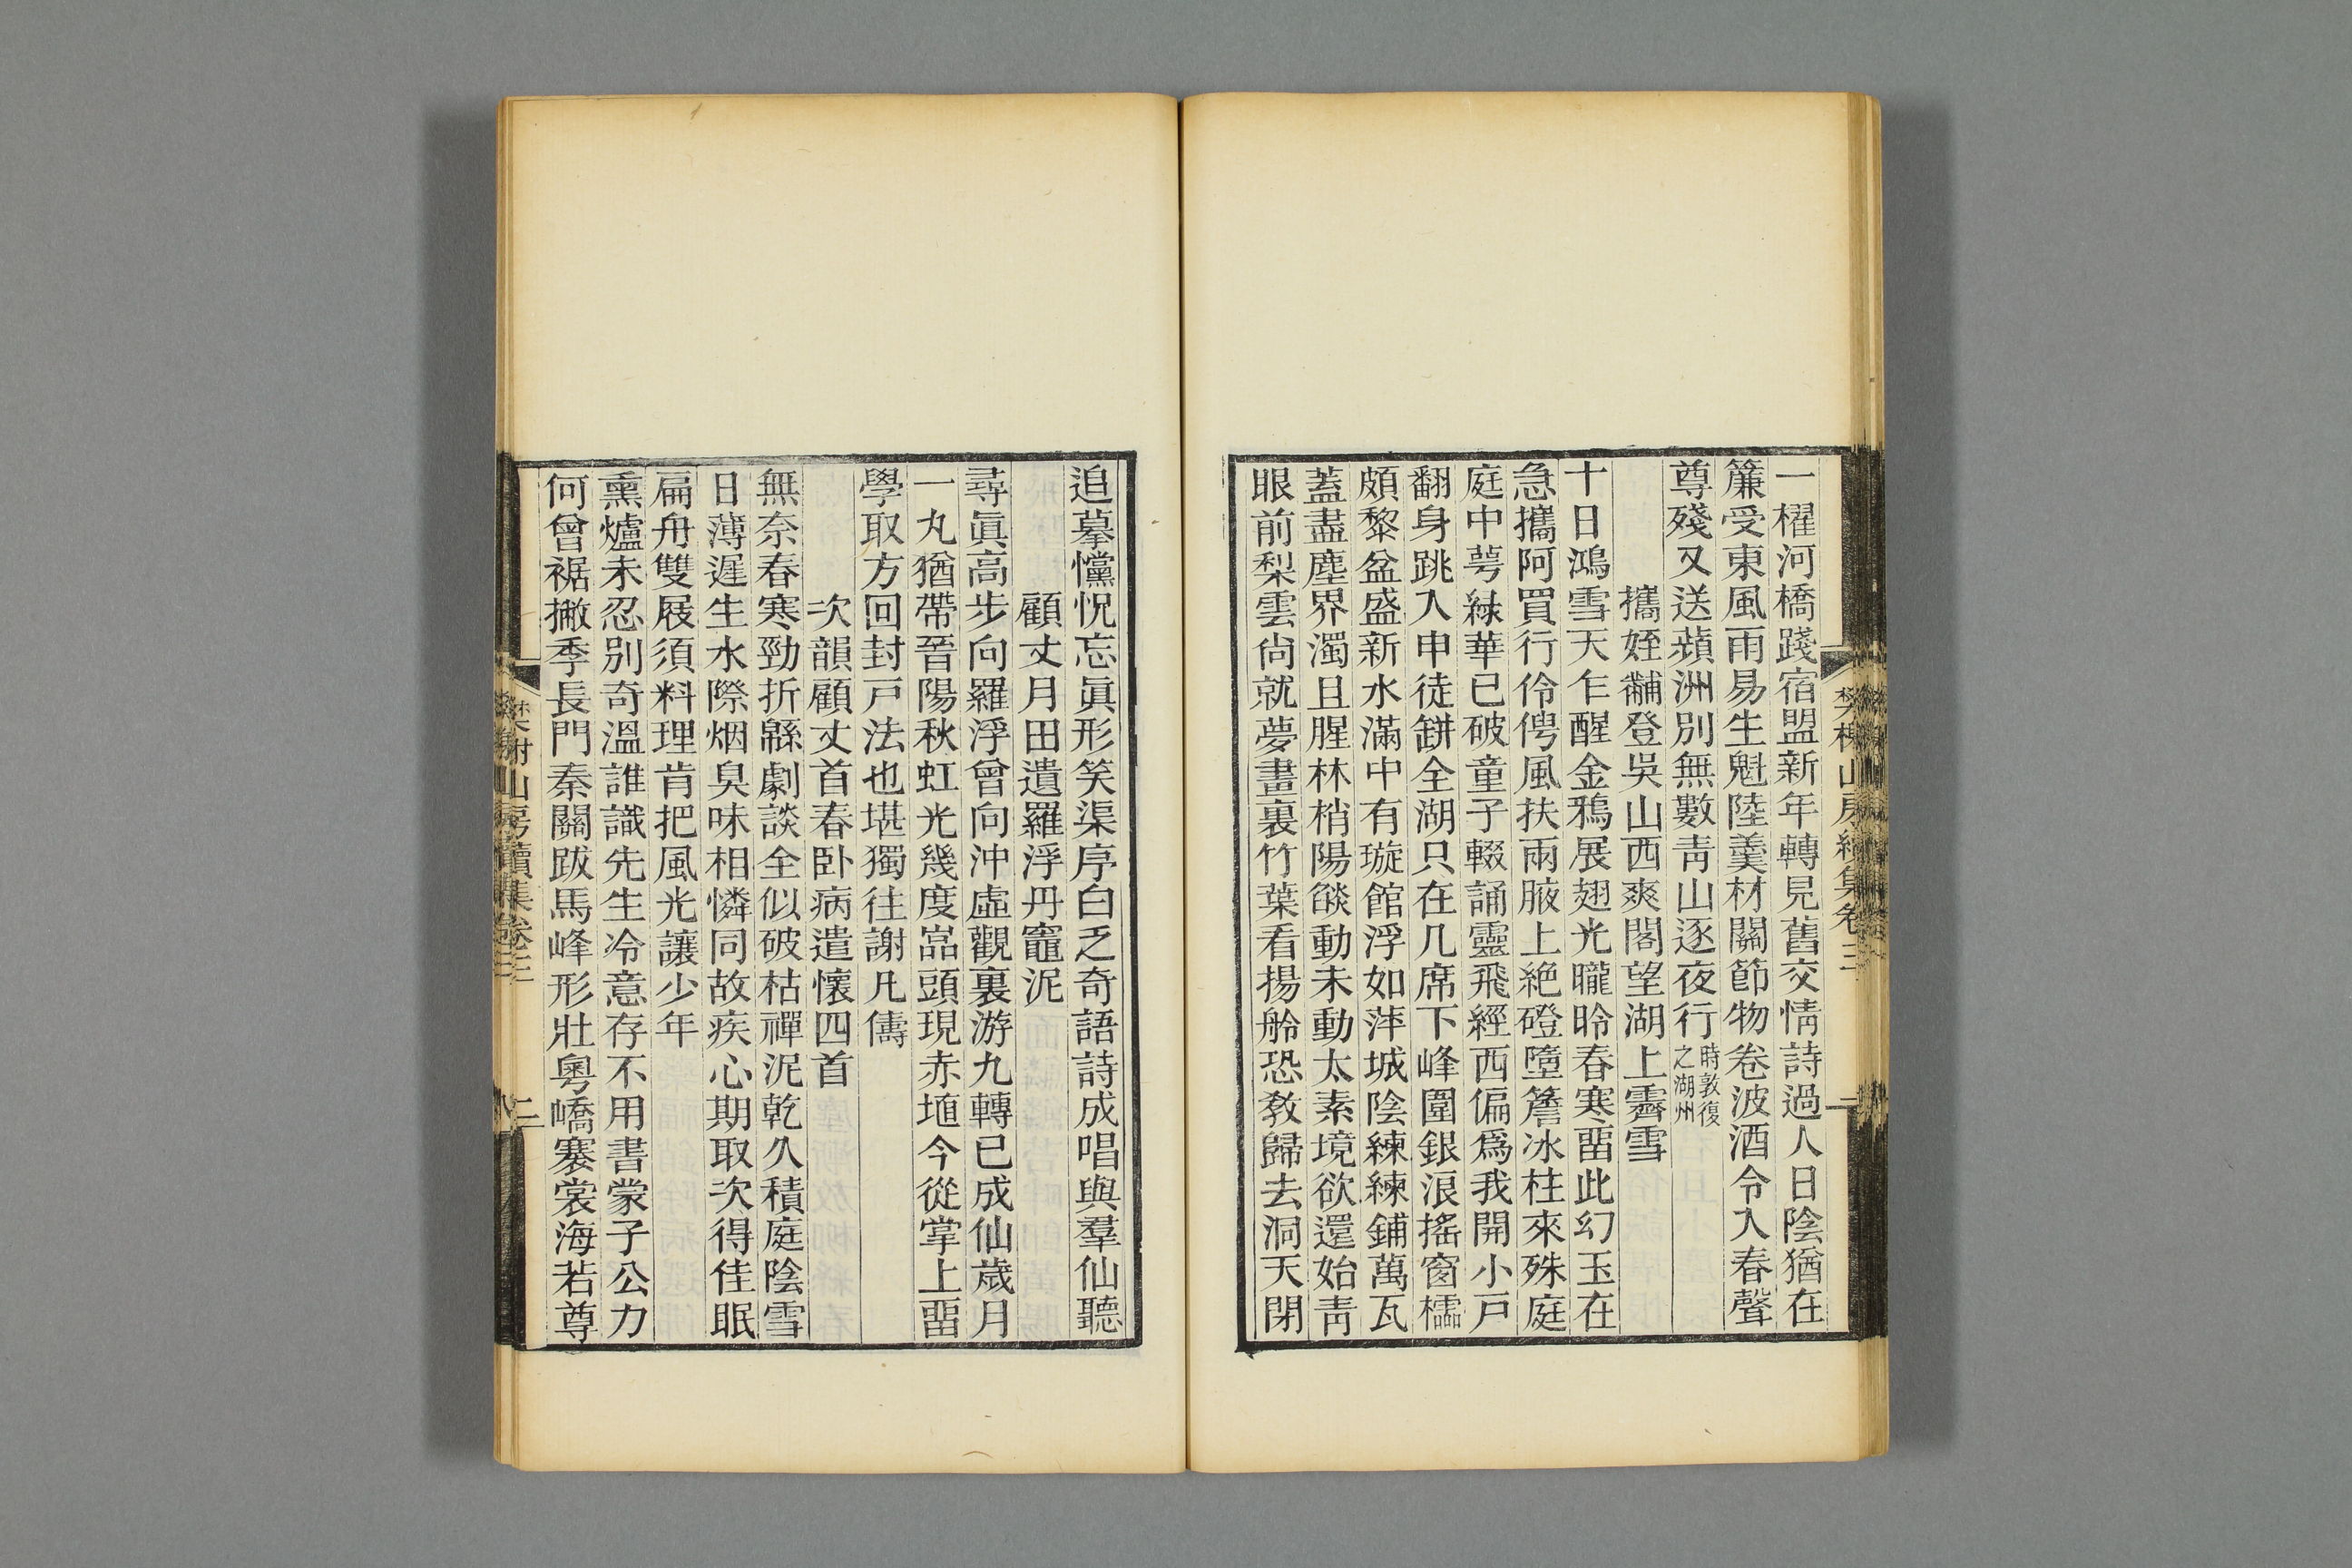 一櫂河橋踐宿盟新年轉見舊交情詩過人日陰猶在
簾受東風雨易生魁陸羹材關節物卷波酒令入春聲
尊殘又送蘋洲別無數靑山逐夜行時敦復之湖州
攜姪黼登吳山西爽閣望湖上霽雪
十日鴻雪天乍醒金鴉展翅光曨昤春寒畱此幻玉在
急攜阿買行伶俜風扶兩腋上絕磴墮簷冰柱來殊庭
庭中萼綠華已破童子輟誦靈飛經西偏爲我開小戸
翻身跳入申徒缾全湖只在几席下峰圍銀浪搖窗櫺
頗黎盆盛新水滿中有璇館浮如萍城陰練練鋪萬瓦
蓋盡塵界濁且腥林梢陽燄動未動太素境欲還始靑
眼前梨雲尙就夢畫裏竹葉看揚舲恐敎歸去洞天閉
追摹懺怳忘眞形笑渠序白乏奇語詩成唱與羣仙聽
顧丈月田遺羅浮丹竈泥
尋眞高步向羅浮曾向沖虛觀裏游九轉已成仙歲月
一丸猶帶晉陽秋虹光幾度嵓頭現赤埴今從掌上畱
學取方回封戸法也堪獨往謝凡儔
次韻顧丈首春卧病遣懷四首
無奈春寒勁折緜劇談全似破枯禪泥乾久積庭陰雪
日薄遲生水際烟臭味相憐同故疾心期取次得佳眠
扁舟雙屐須料理肯把風光讓少年
熏爐未忍別奇溫誰識先生冷意存不用書蒙子公力
何曾裾撇季長門秦關跋馬峰形壯粵嶠褰裳海若尊
樊榭山房續集卷三
二